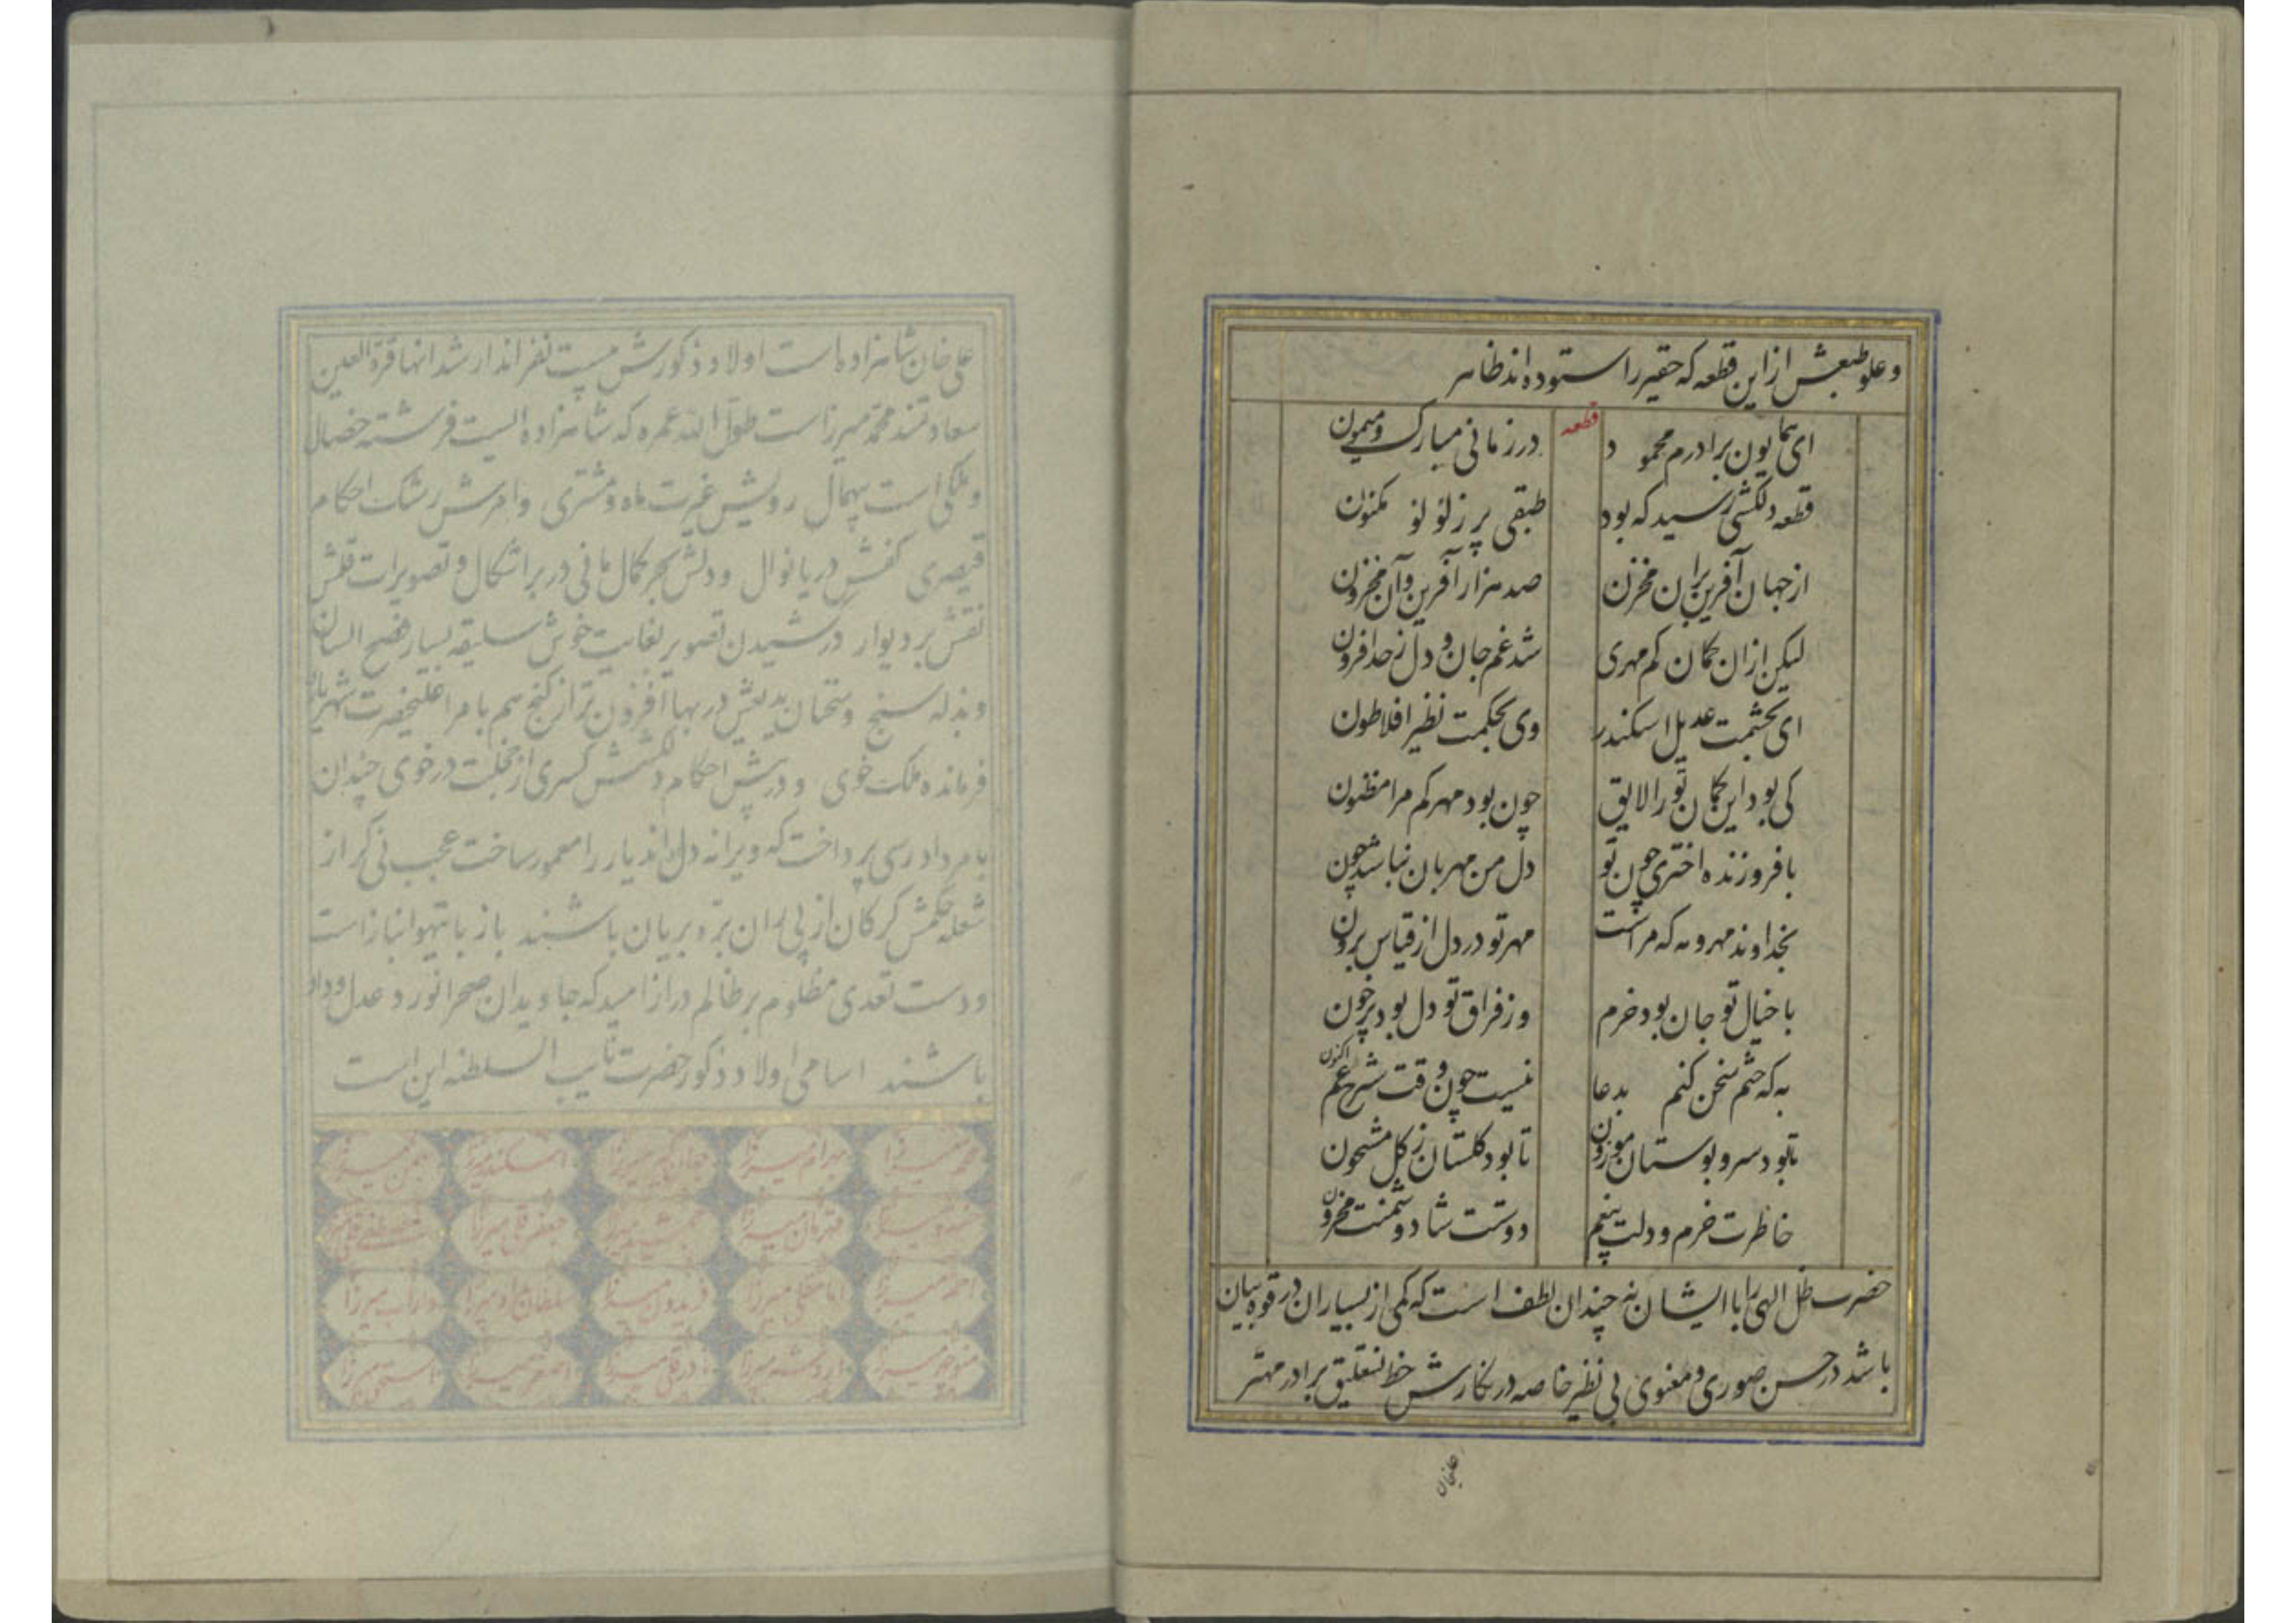 و علو طبعش از این قطعه که حقیر را ستوده اند ظاهر
قطعه
ای همایون برادرم محمود در زمانی مبارک و میمون
قطعه دلکشی رسید که بود طبقی پر ز لؤلؤ مکنون
از جهان آفرین بران مخزن صد هزار آفرین و آن مخزون
لیکن ازان گمان کم مهری شد غم جان و دل ز حد افزون
ای بحشمت عدیل اسکندر وی بحکمت نظیر افلاطون
کی بود این گمان تو را لایق چون بود مهر کم مرا مظنون
با فروزنده اختری چون تو دل من مهربان نباشد چون
بخداوند مهر و مه که مراست مهر تو در دل از قیاس برون
با خیال تو جان بود خرم وز فراق تو دل بود پر خون
به که ختم سخن کنم بدعا نیست چون وقت شرح غم اکنون
تا بود سرو بوستان موزون تا بود گلستان ز گل مشحون
خاطرت خرم و دلت بیغم دوستت شاد و دشمنت محزون
حضرت ظل الهی را با ایشان نه چندان لطف است که کمی از بسیاران در قوه بیان
باشد در حسن صوری و معنوی بی نظیر خاصه در نگارش خط نستعلیق برادر مهتر
علیخان
علی خان شاهزاده است اولاد ذکورش بیست نفراند ارشد انها قرة العین
سعادتمند محمد میرزاست طول الله عمره که شاهزاده ایست فرشته خصال
و ملکی است بیهمال رویش غیرت ماه و مشتری و امرش رشک احکام
قیصری کفش دریا نوال و دلش بحر کمال مانی در بر اشکال و تصویرات قلمش
نقش بر دیوار در کشیدن تصویر بغایت خوش سلیقه بسیار فصیح اللسان
و بذله سنج و سخنان بدیعش در بها افزون تر از گنج هم بامر اعلیحضرت شهریار
فرمانده ملکت خوی و در پیش احکام دلکشش کسری از خجلت در خوی چندان
بامر دادرسی پرداخت که ویرانه دل اندیار را معمور ساخت عجب نی گر از
شعله حکمش گرگان از پی ران بره بریان باشند باز با تیهو انباز است
و دست تعدی مظلوم بر ظالم دراز امید که جاویدان صحرا نورد عدل و داد
باشند اسامی اولاد ذکور حضرت نایب السلطنه این است
محمد میرزا بهرام میرزا جهانگیر میرزا اسکندر میرزا بهمن میرزا
خسرو میرزا قهرمان میرزا جمشید میرزا جعفر قلی میرزا مصطفی قلی میرزا
احمد میرزا فریدون میرزا سلطان مراد میرزا داراب میرزا
منوچهر میرزا اردشیر میرزا